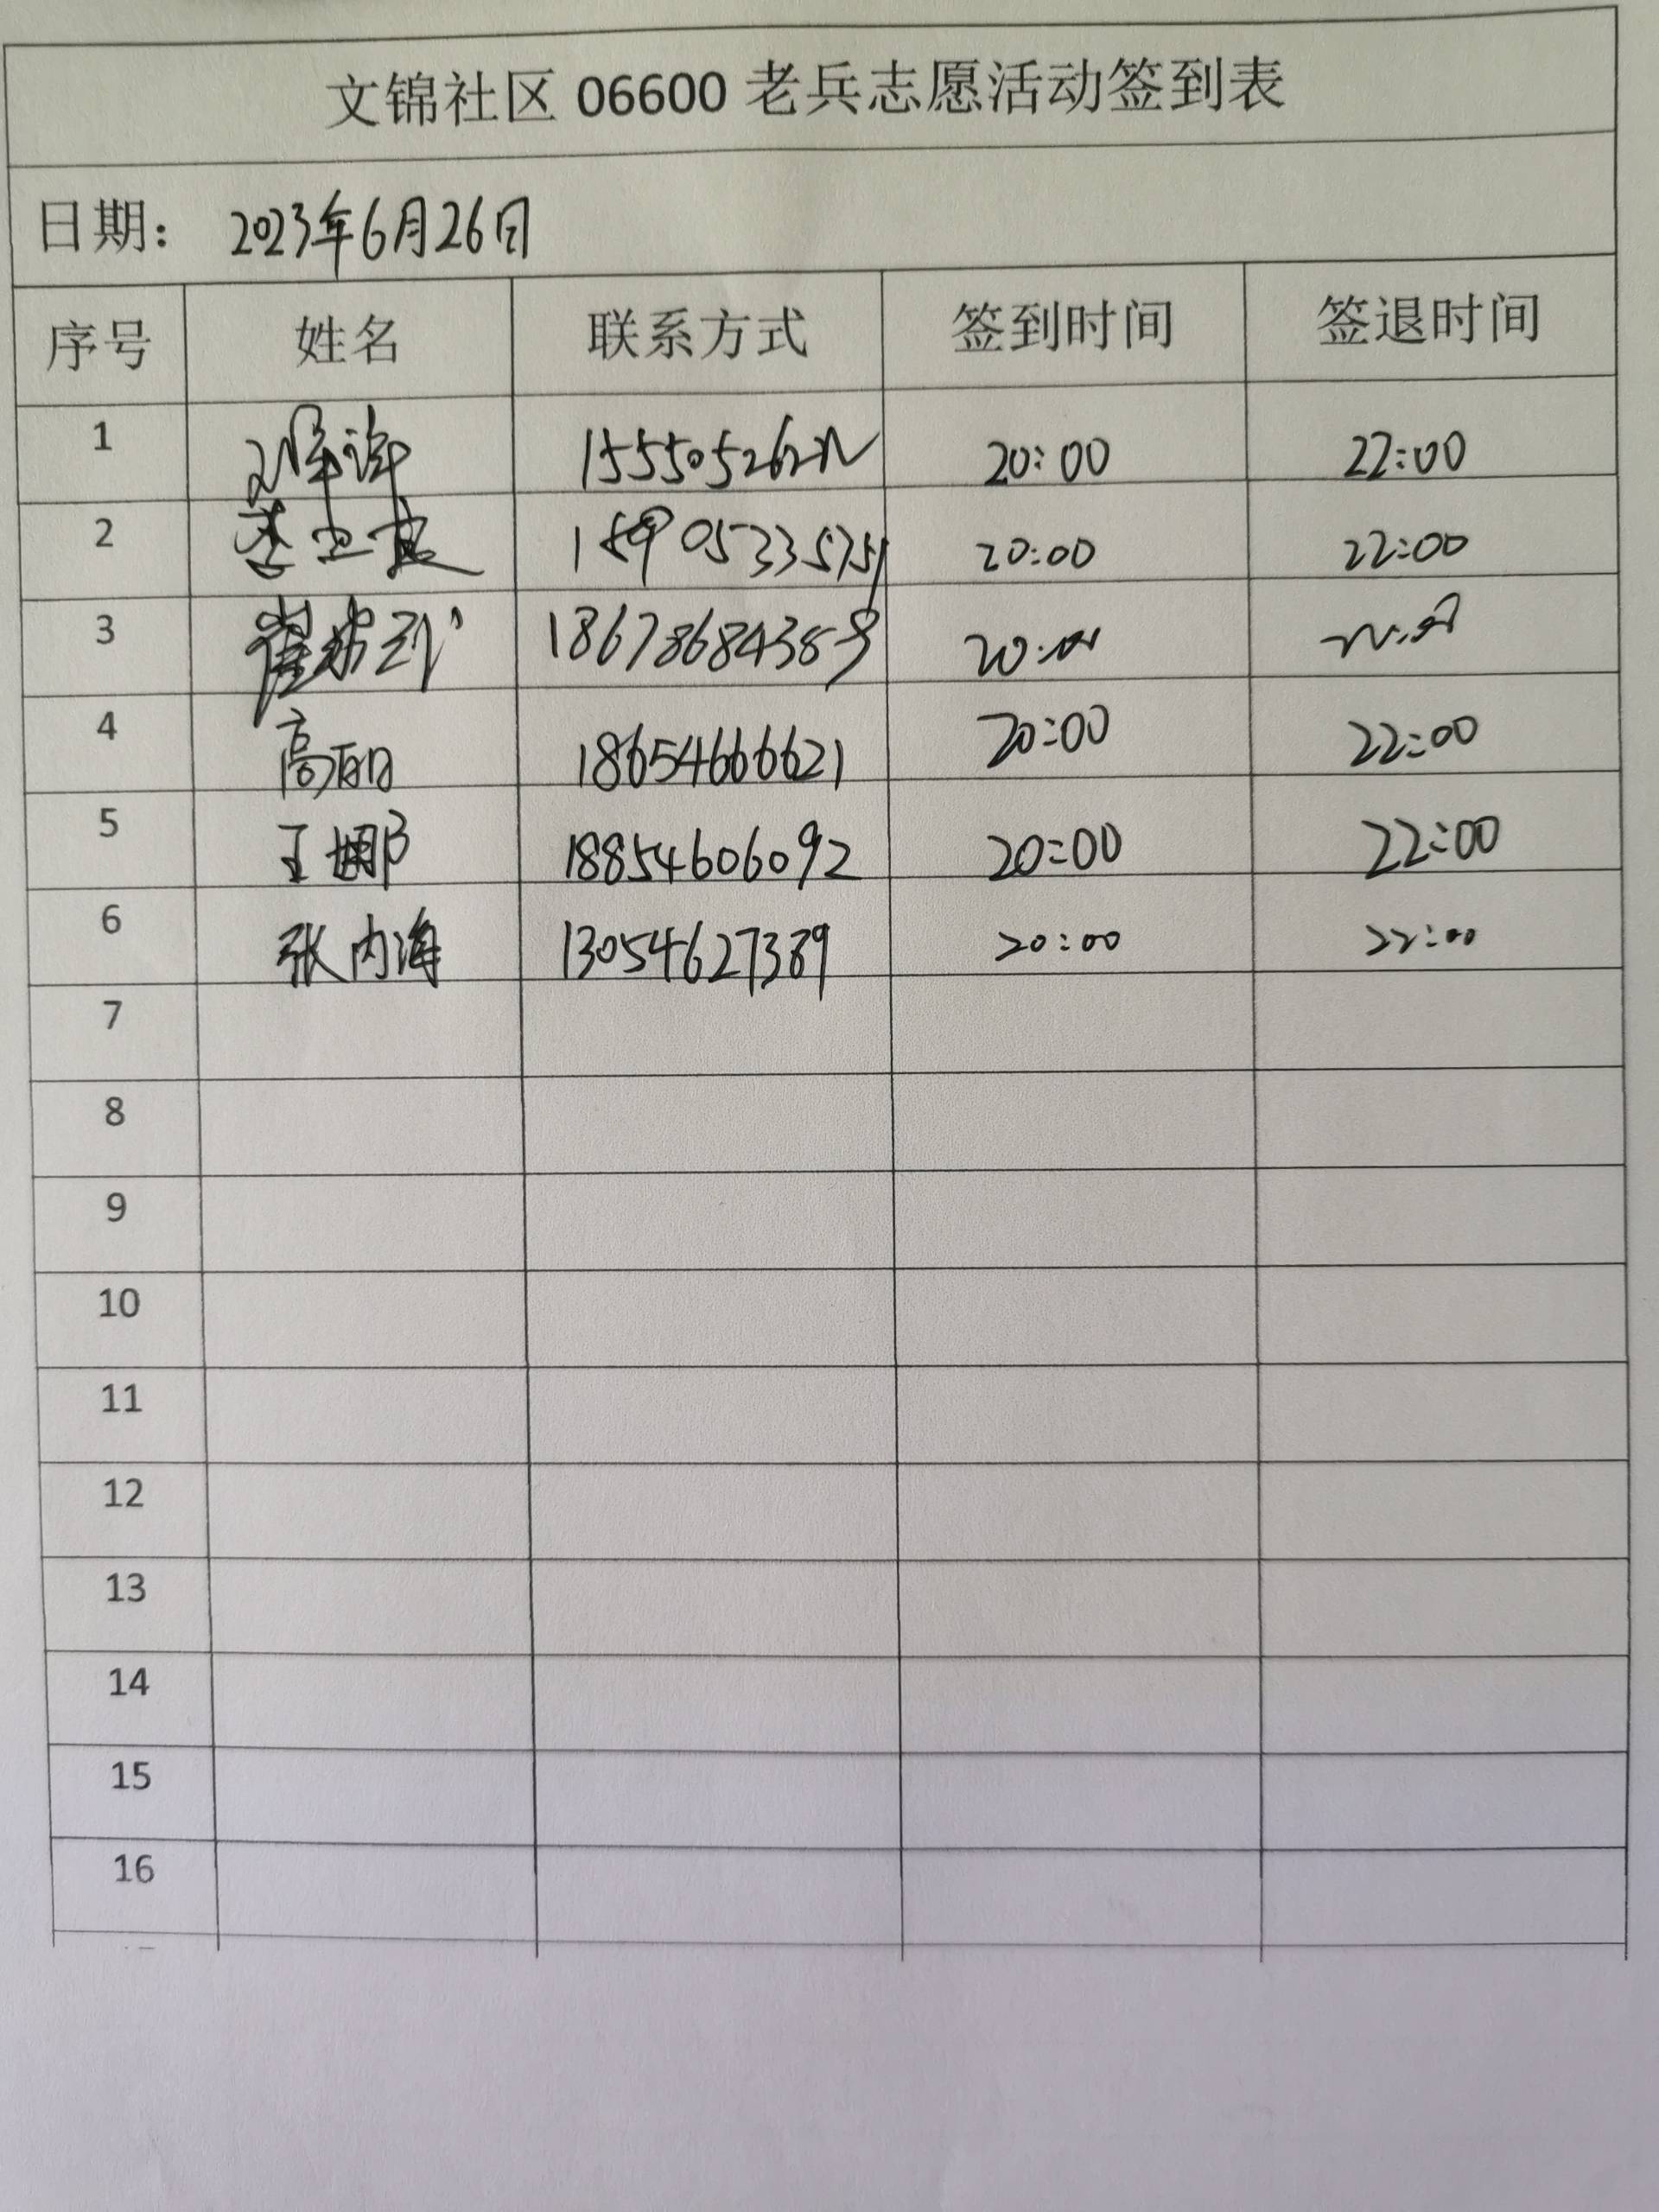 文锦社区 06600 老兵志愿活动签到表
日期： 2023年6月26日
序号 姓名 联系方式 签到时间 签退时间
1 20:00 22:00
2 20:00 22:00
3 18678684389 20:00 22:00
4 高 18654666621 20:00 22:00
5 王娜 18854606092 20:00 22:00
6 张内海 13054627389 20:00 22:00
7
8
9
10
11
12
13
14
15
16